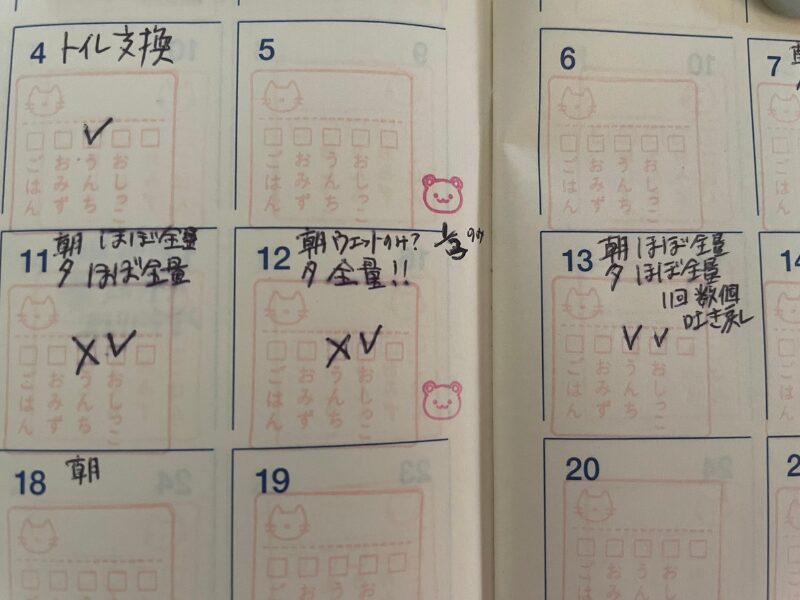 4 トイレ交換
ごはん おみず うんち おしっこ
5
ごはん おみず うんち おしっこ
6
ごはん おみず うんち おしっこ
7
11 朝 ほぼ全量
夕 ほぼ全量
ごはん おみず うんち おしっこ
12 朝 ウェットのみ? 1/3のみ
夕 全量!!
ごはん おみず うんち おしっこ
13 朝 ほぼ全量
夕 ほぼ全量
1回 数個
吐き戻し
ごはん おみず うんち おしっこ
18 朝
19
20